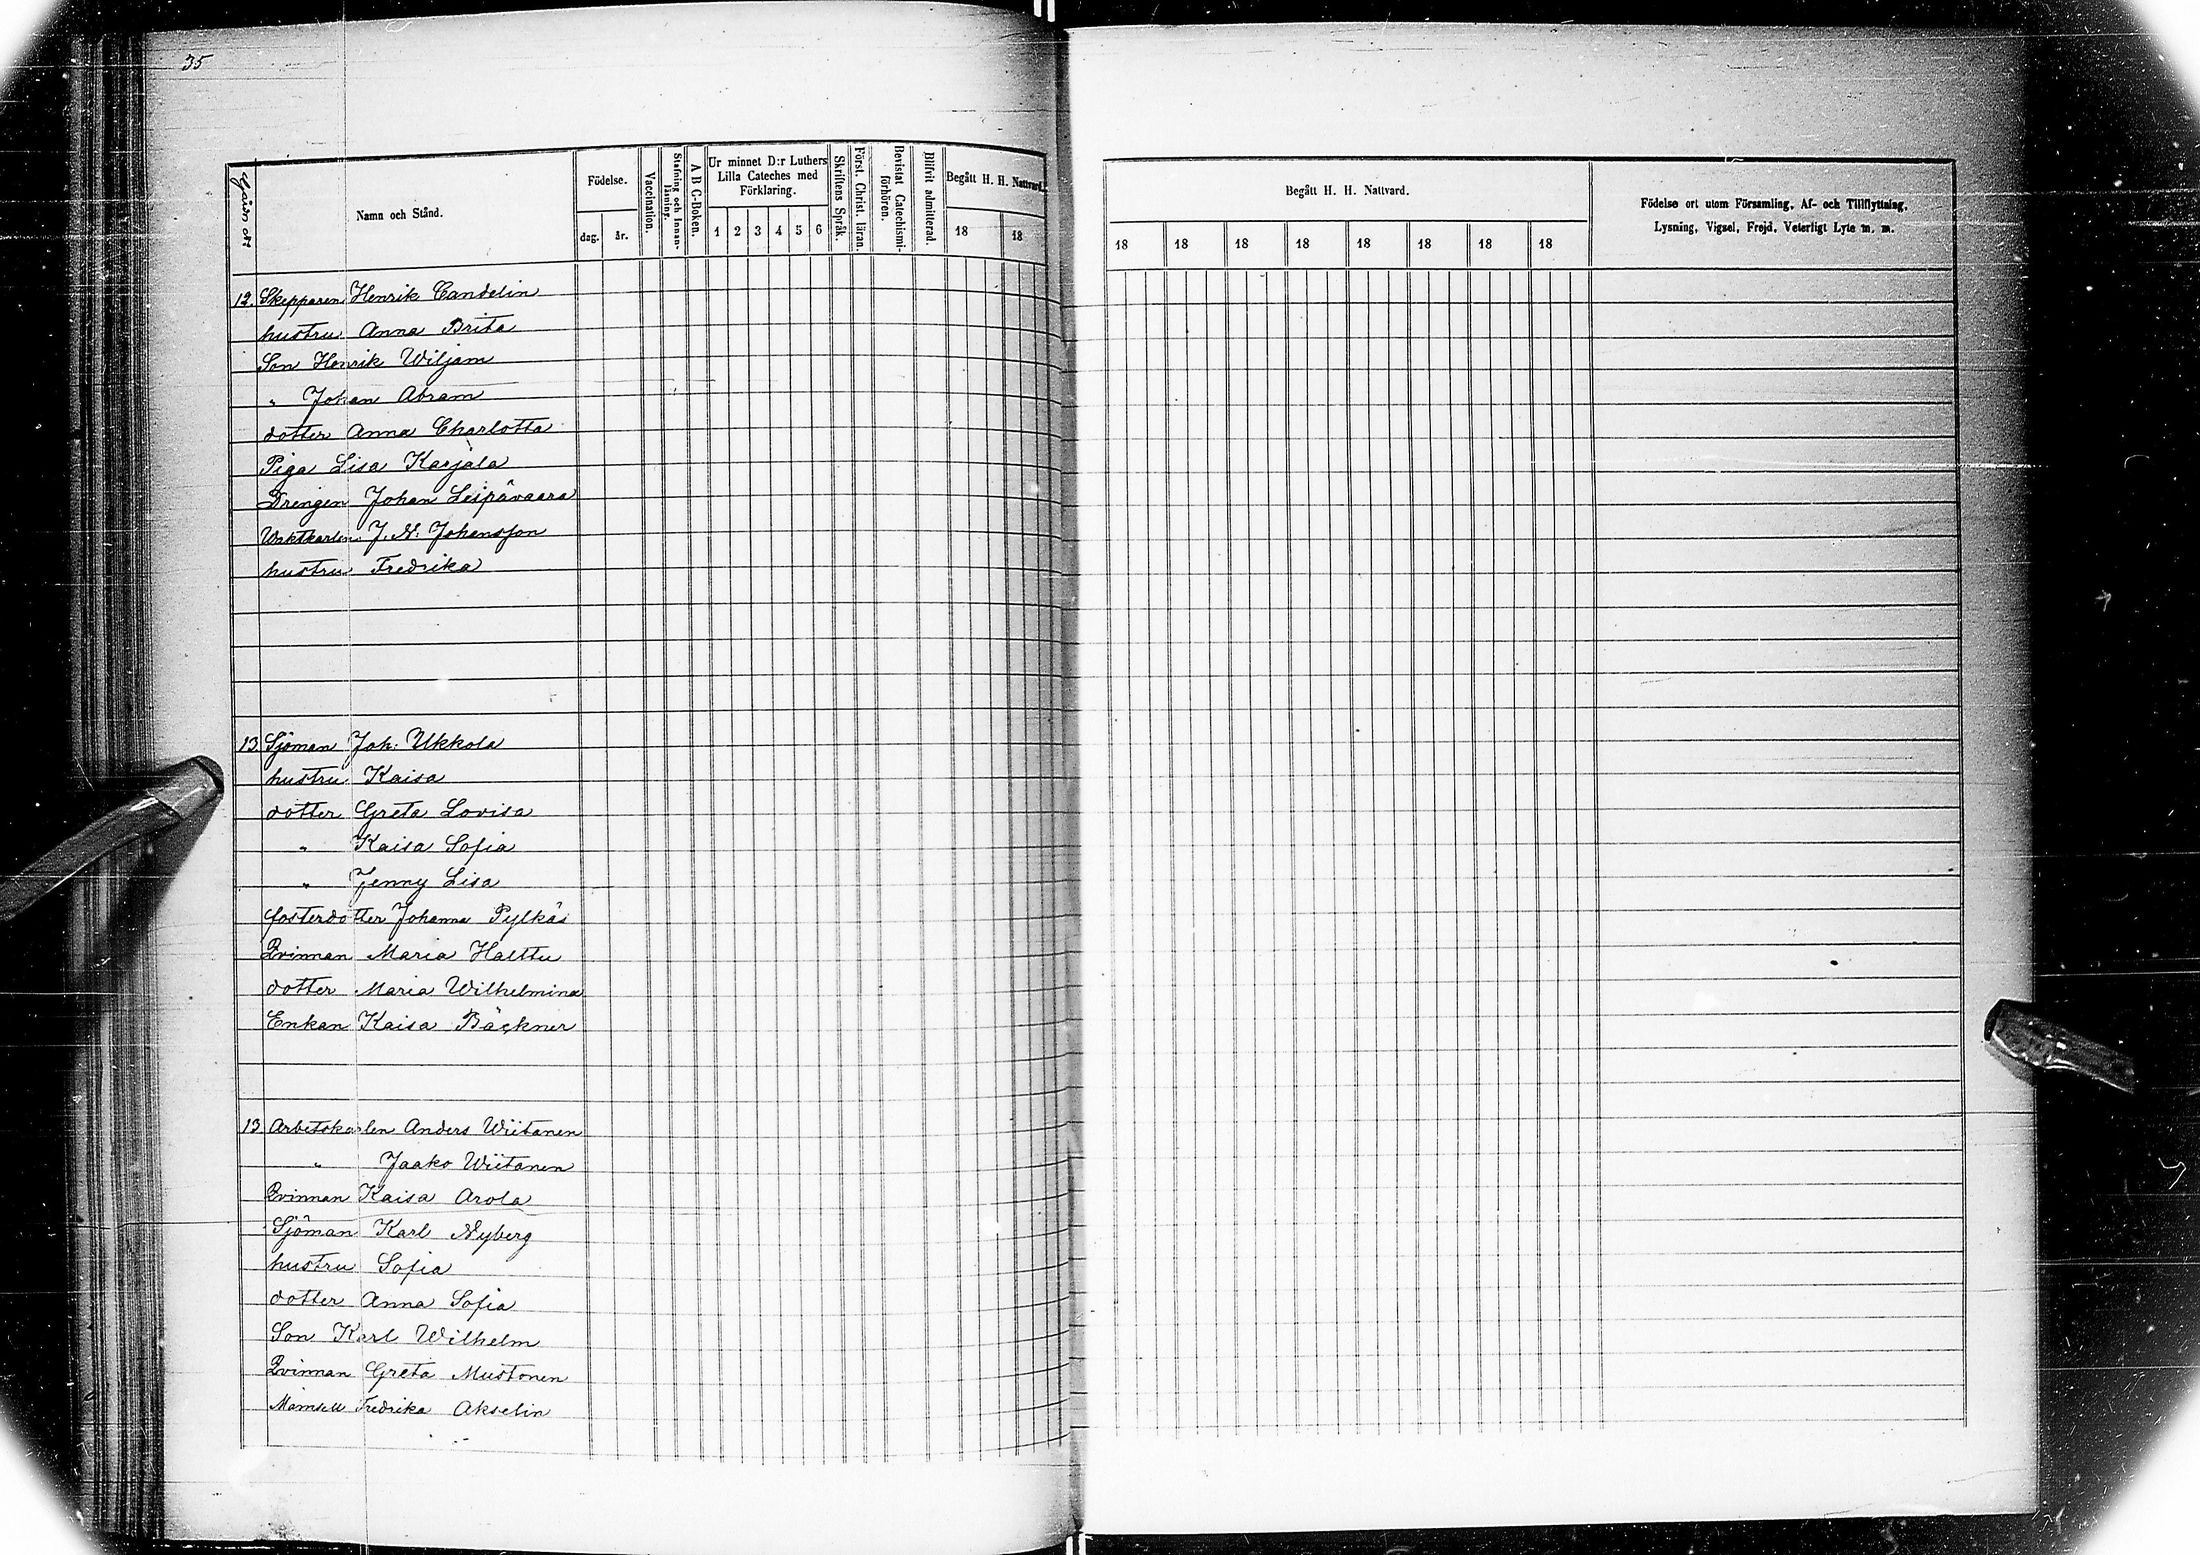 35
Gårds №
Namn och Stånd.
Födelse.
dag.
år.
Vaccination.
Stafning och Innan-
läsning.
A B C-Boken.
Ur minnet D:r Luthers
Lilla Cateches med
Förklaring.
1 2 3 4 5 6
Skriftens Språk.
Först. Christ. läran.
Bevistat Catechismi-
förhören.
Blifvit admitterad.
Begått H. H. Nattvard.
18 18
Begått H. H. Nattvard.
18 18 18 18 18 18 18 18
Födelse ort utom Församling, Af- och Tillflyttning,
Lysning, Vigsel, Frejd, Veterligt Lyte m. m.
12. Skepparen Henrik Candelin
hustru Anna Brita
Son Henrik Wiljam
" Johan Abram
dotter Anna Charlotta
Piga Lisa Karjala
Drengen Johan Leipävaara
Waktkarlen J. N. Johansson
hustru Fredrika
13 Sjöman Joh: Ukkola
hustru Kaisa
dotter Greta Lovisa
" Kaisa Sofia
" Jenny Lisa
fosterdotter Johanna Pylkäs
Qvinnan Maria Halttu
dotter Maria Wilhelmina
Enkan Kaisa Bäckner
13 Arbetskarlen Anders Wiitanen
" Jaako Wiitanen
Qvinnan Kaisa Arola
Sjöman Karl Nyberg
hustru Sofia
dotter Anna Sofia
Son Karl Wilhelm
Qvinnan Greta Mustonen
Mamsell Fredrika Akselin